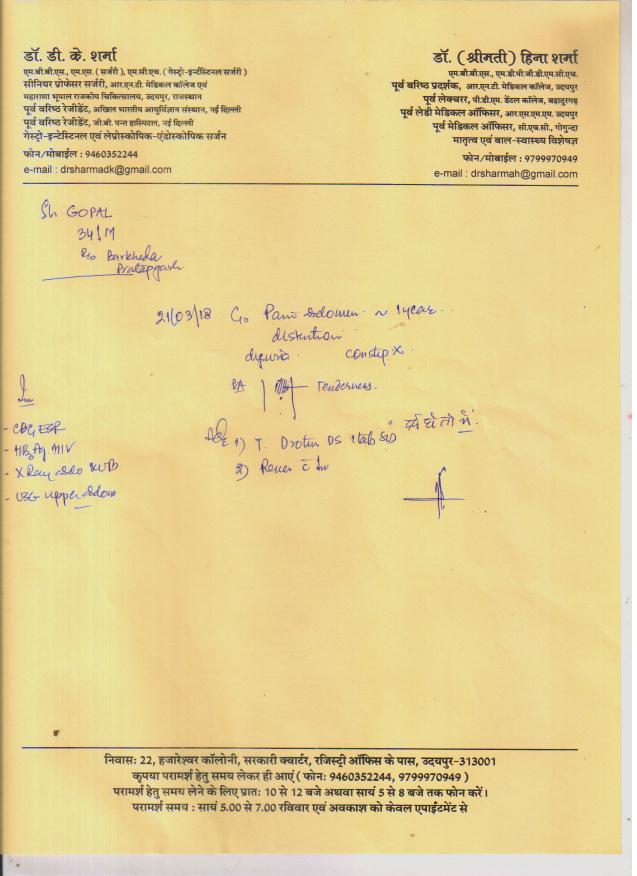 डॉ. डी. के. शर्मा
एम.बी.बी.एस., एम.एस. ( सर्जरी ), एम.सी.एच. ( गेस्ट्रो-इन्टेंस्टिनल सर्जरी )
सीनियर प्रोफेसर सर्जरी, आर.एन.टी. मेडिकल कॉलेज एवं
महाराणा भूपाल राजकीय चिकित्सालय, उदयपुर, राजस्थान
पूर्व वरिष्ठ रेजीडेंट, अखिल भारतीय आयुर्विज्ञान संस्थान, नई दिल्ली
पूर्व वरिष्ठ रेजीडेंट, जी.बी. पन्त हास्पिटल, नई दिल्ली
गेस्ट्रो-इन्टेस्टिनल एवं लेप्रोस्कोपिक-एंडोस्कोपिक सर्जन
फोन/मोबाईल : 9460352244
e-mail : drsharmadk@gmail.com
डॉ. ( श्रीमती ) हिना शर्मा
एम.बी.बी.एस., एम.डी.पी.जी.डी.एम.सी.एच.
पूर्व वरिष्ठ प्रदर्शक, आर.एन.टी. मेडिकल कॉलेज, उदयपुर
पूर्व लेक्चरर, पी.डी.एम. डेंटल कॉलेज, बहादुरगढ़
पूर्व लेडी मेडिकल ऑफिसर, आर.एस.एम.एम. उदयपुर
पूर्व मेडिकल ऑफिसर, सी.एच.सी., गोगुन्दा
मातृत्व एवं बाल-स्वास्थ्य विशेषज्ञ
फोन/मोबाईल : 9799970949
e-mail : drsharmah@gmail.com
Sh GOPAL
34/M
R/o Barkheda
Pratapgarh
21/03/18 C/o Pain abdomen ~ 1 year
distention
constip X
P/A Tenderness.
Inv
- CBC, ESR
- HBsAg, HIV
- X Ray abdo KUB
- USG upper abdom
Adv 1) T. Drotin DS 1 tab SOS दर्द हो तो
2) Review c Inv
निवास: 22, हजारेश्वर कॉलोनी, सरकारी क्वार्टर, रजिस्ट्री ऑफिस के पास, उदयपुर-313001
कृपया परामर्श हेतु समय लेकर ही आएं ( फोन: 9460352244, 9799970949 )
परामर्श हेतु समय लेने के लिए प्रात: 10 से 12 बजे अथवा सायं 5 से 8 बजे तक फोन करें।
परामर्श समय : सायं 5.00 से 7.00 रविवार एवं अवकाश को केवल एपाईंटमेंट से